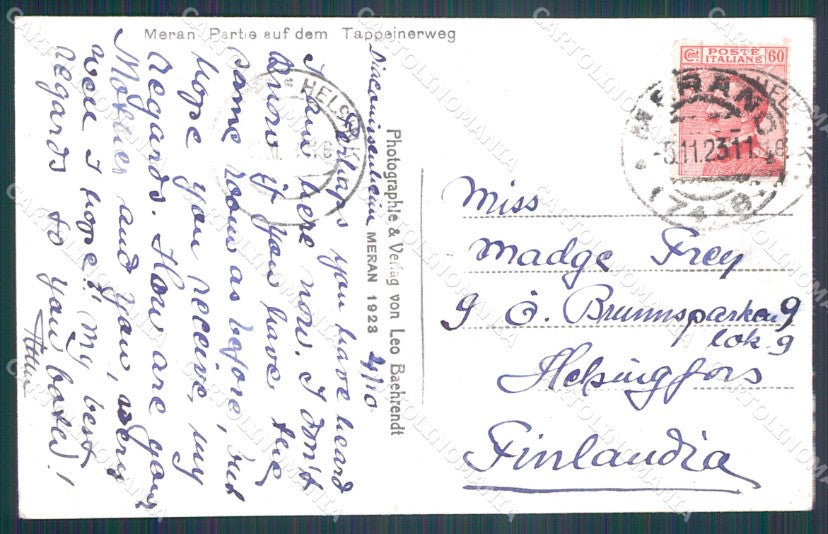 Meran Partie auf dem Tappeinerweg
Diaconissenheim MERAN 1923 24/10
Perhaps you have heard
I am here now. I don't
know if you have the
same room as before, but
hope you receive, my
regards. How are your
Mother and you, very
well I hope! My best
regards to you both!
Photographie & Verlag von Leo Baehrendt
POSTE
ITALIANE
Cent 60
MERANO
-5.11.23 11
HELSINKI
HELSINKI
Miss
Madge Frey
9 Ö. Brunnsparken 9
lok. 9
Helsingfors
Finlandia
CARTOLINOMANIA